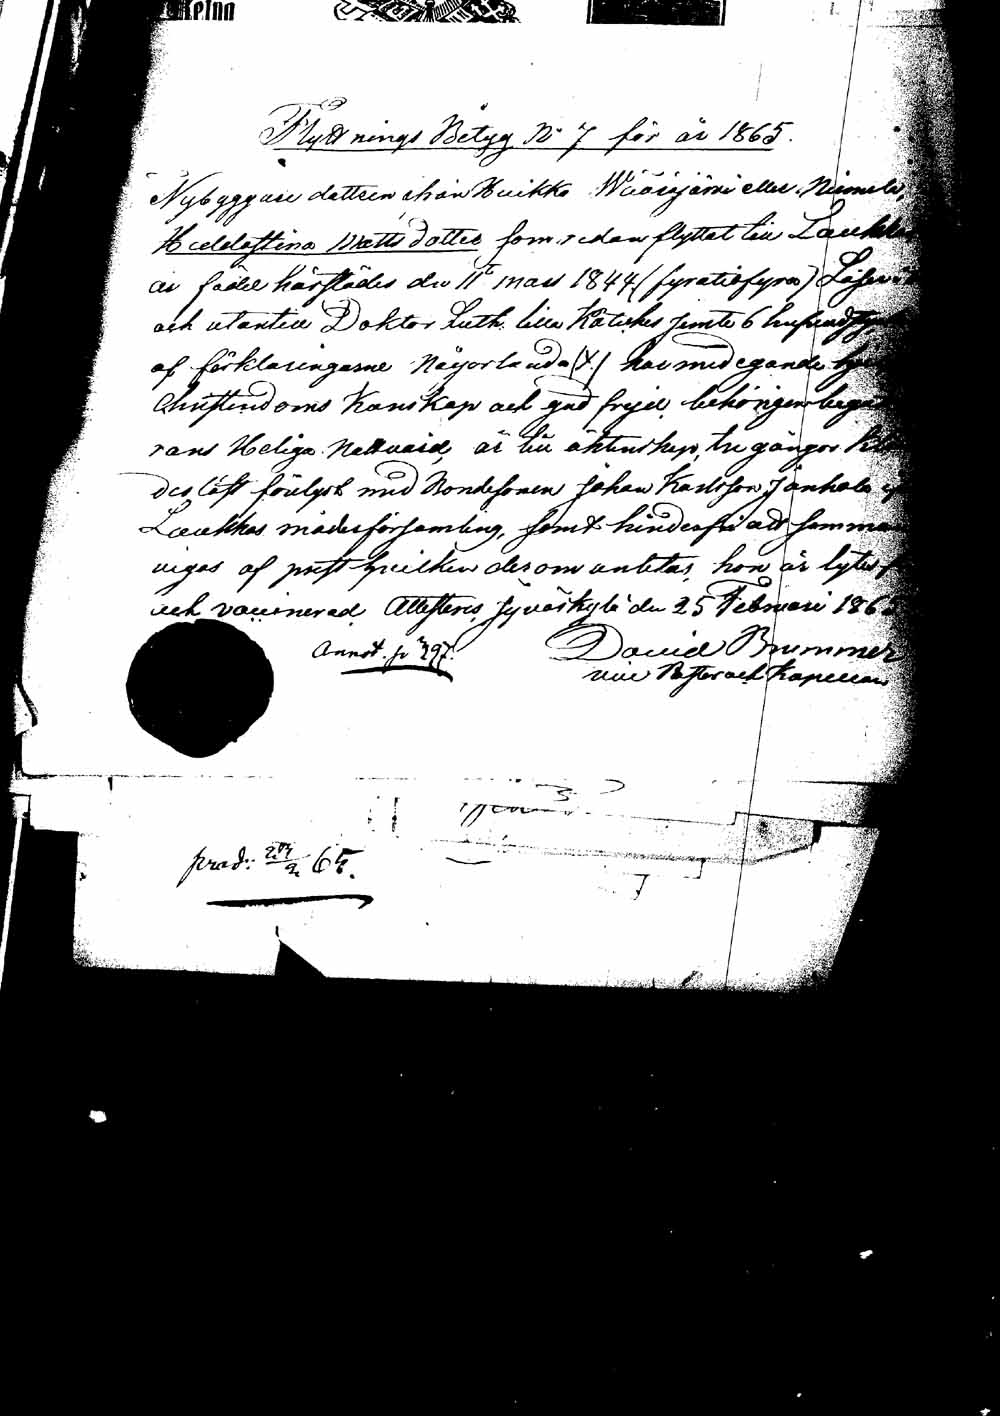 Flyttnings Betyg No 7 för år 1865.
Nybyggare dottren ifrån Huikko Wääräjärvi eller Niemelä,
Heddastina Matts dotter som redan flyttat till Laukkas
är född härstädes den 11te mars 1844 (fyratiofyra) Läser
och utantill Doktor Luth. lilla Katekes jemte 6 hufvudst
af förklaringarne någorlunda (X.) har med egande
Christendoms Kunskap och god frejd, behörigen bega
rans Heliga Nattvard, är till äktenskap, tre gångor
des löst förelyst med Bondesonen Johan Karlsson Janhola
Laukkas moderförsamling, samt hinderfri att samman
vigas af prest hvilken derom anlitas, hon är lyte
och vaccinerad, Attesteras, Jyväskylä den 25 Februari 1865
Annot. p 297.
David Brummer
vice Pastor och Kapellan
prod: 65.